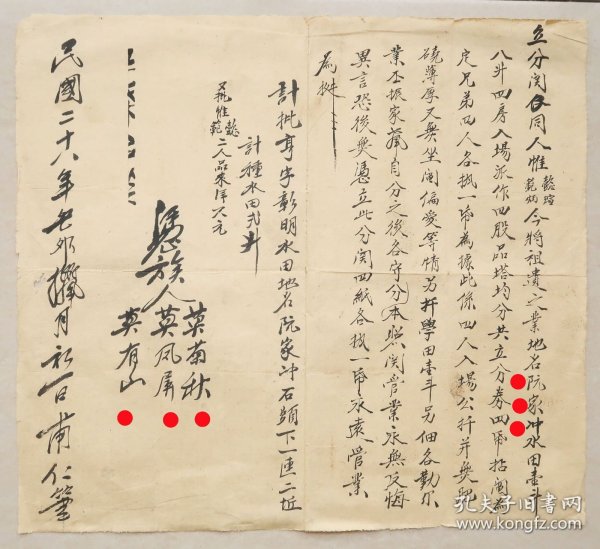 立分関合同人惟懿晧範炳今将祖遺之業地名阮家冲水田壹斗
八升四房入場派作四股品塔均分共立分券四帋拈阄為
定兄弟四人各执一帋為據此係四人入場公抒并無肥
磽薄厚又無坐阄偏爱等情另抒學田壹斗另佃各勤尔
業丕振家聲自分之後各守分本照関管業永無反悔
異言恐後無憑立此分関四紙各执一帋永遠管業
為拠
計批亨字彰明水田地名阮家冲石頭下一連二坵
計種水田弍升
惟懿範二人品来洋六元
憑族人
葉菊秋
英凤屏
英有山
民國二十八年己卯臘月初一日 甫仁筆
孔夫子旧書网
www.kongfz.com